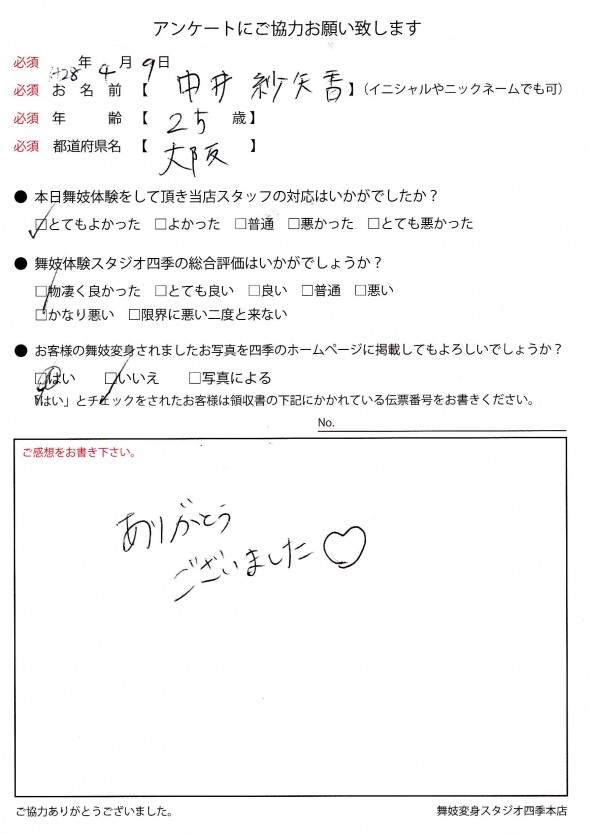 アンケートにご協力お願い致します
必須 H28年 4月 9日
必須 お名前【 中井 紗矢香 】(イニシャルやニックネームでも可)
必須 年 齢【 25 歳】
必須 都道府県名【 大阪 】
● 本日舞妓体験をして頂き当店スタッフの対応はいかがでしたか？
□とてもよかった □よかった □普通 □悪かった □とても悪かった
● 舞妓体験スタジオ四季の総合評価はいかがでしょうか？
□物凄く良かった □とても良い □良い □普通 □悪い
□かなり悪い □限界に悪い二度と来ない
● お客様の舞妓変身されましたお写真を四季のホームページに掲載してもよろしいでしょうか？
□はい □いいえ □写真による
「はい」とチェックをされたお客様は領収書の下記にかかれている伝票番号をお書きください。
No.
ご感想をお書き下さい。
ありがとう
ございました♡
ご協力ありがとうございました。 舞妓変身スタジオ四季本店